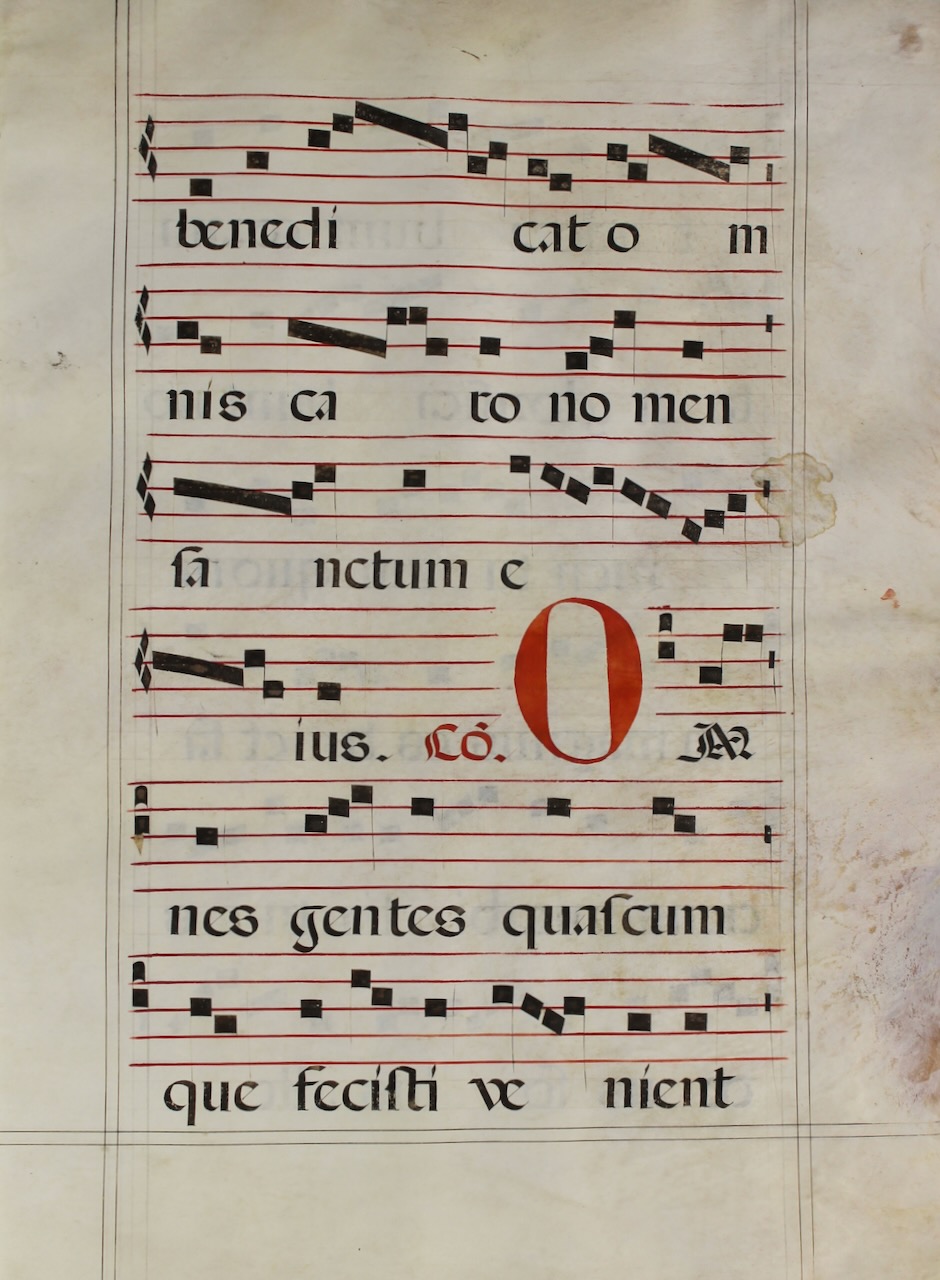 benedi cat o m
nis ca ro no men
ſa nctum e
ius. Cō. O M
nes gentes quaſcum
que feciſti ve nient